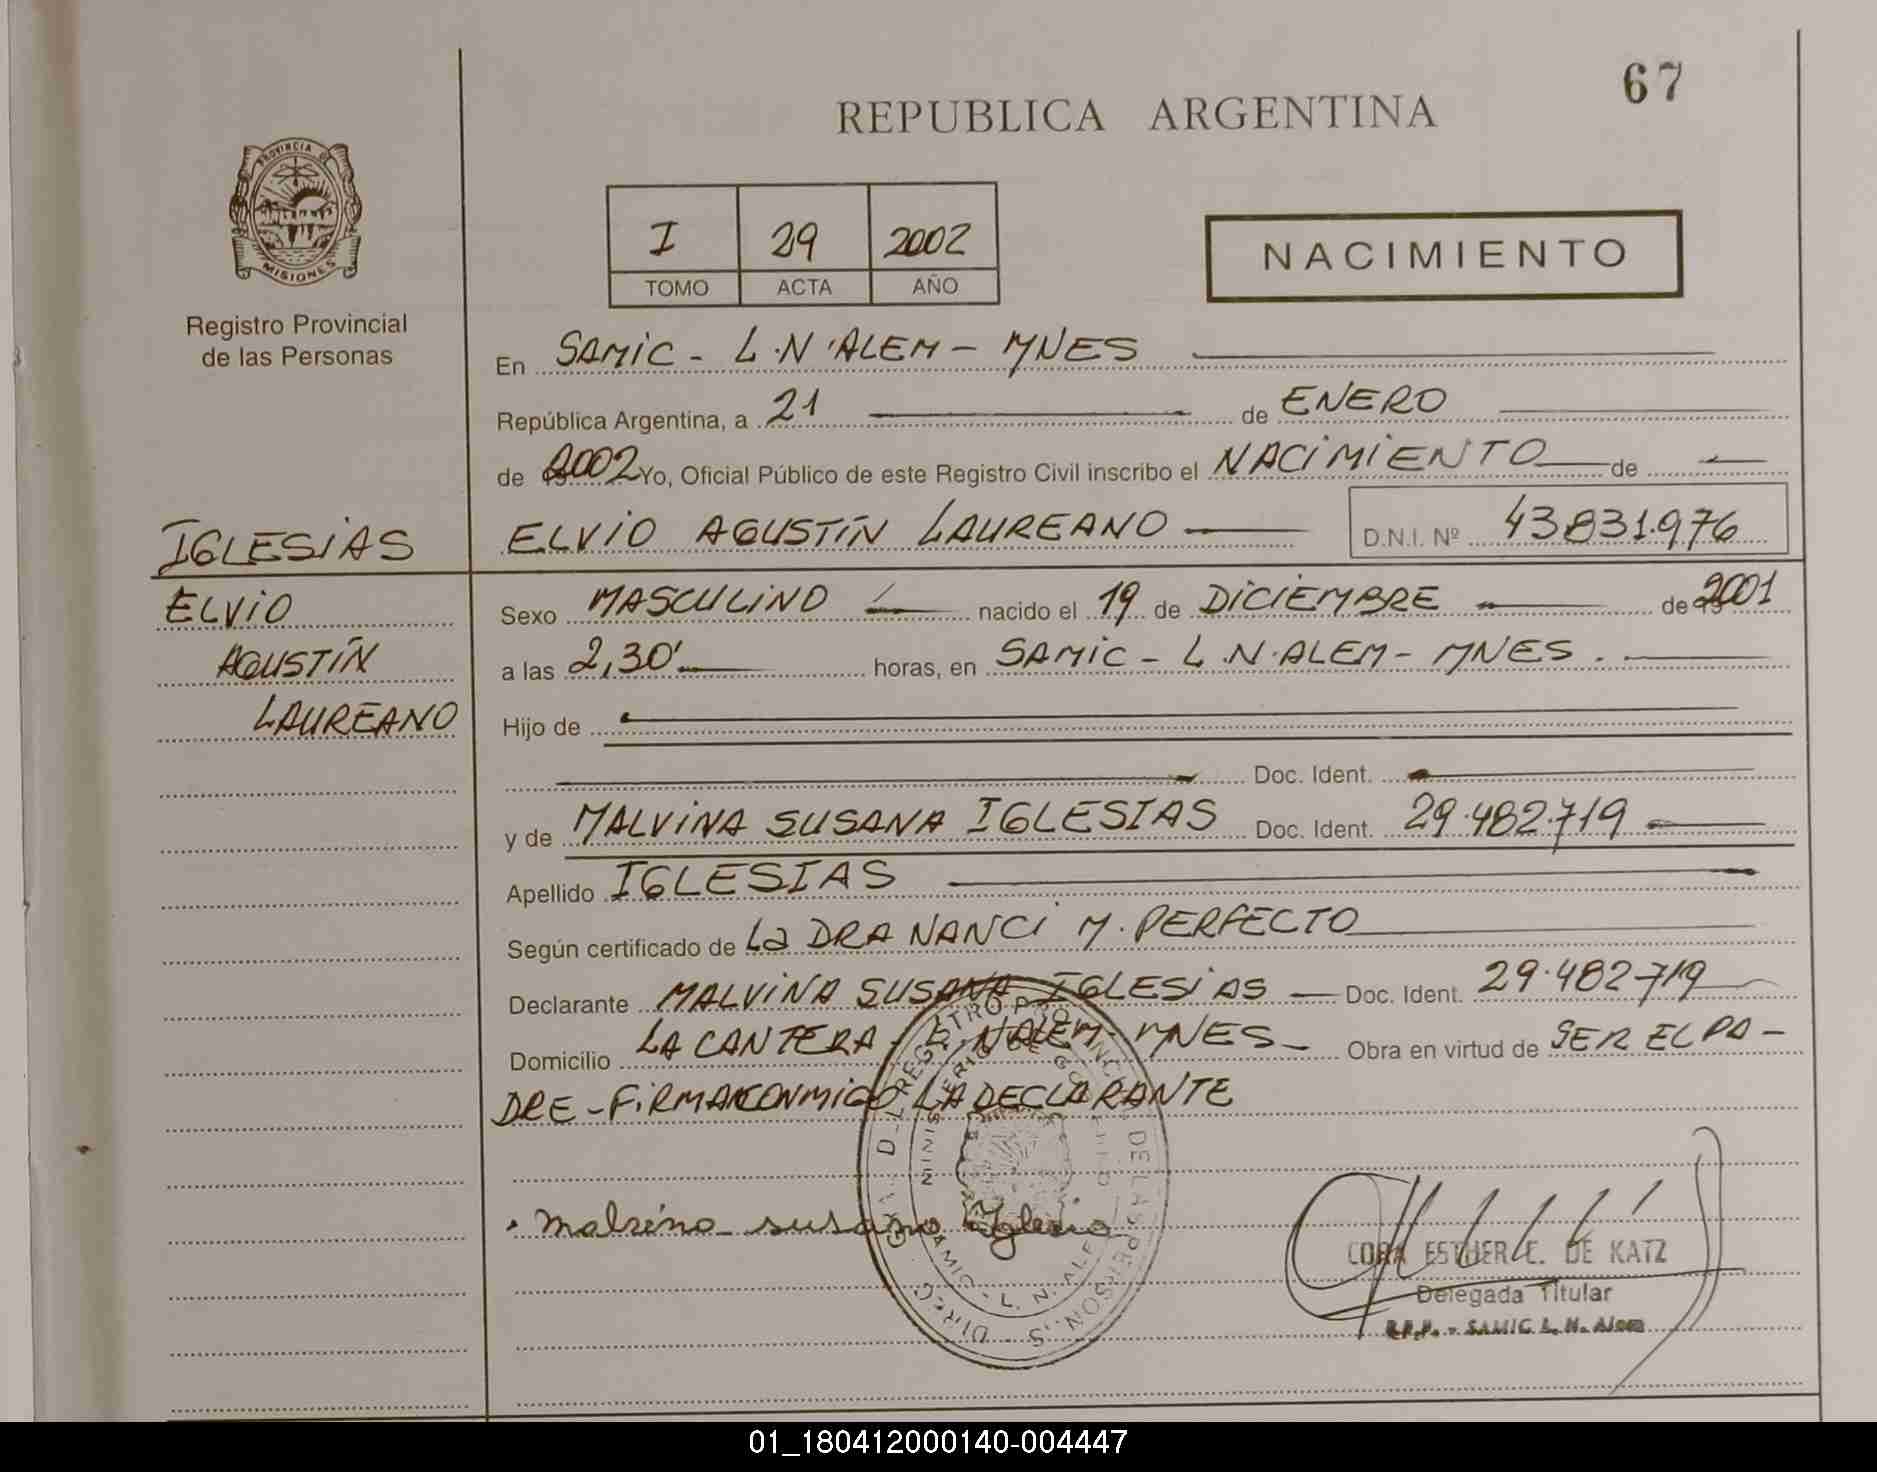 67
REPUBLICA ARGENTINA
PROVINCIA DE
MISIONES
Registro Provincial
de las Personas
I 29 2002
TOMO ACTA AÑO
NACIMIENTO
En SAMIC - L.N.ALEM - MNES
República Argentina, a 21 de ENERO
de 2002 Yo, Oficial Público de este Registro Civil inscribo el NACIMIENTO de
IGLESIAS
ELVIO AGUSTÍN LAUREANO D.N.I. Nº 43831.976
ELVIO
AGUSTÍN
LAUREANO
Sexo MASCULINO nacido el 19 de DICIEMBRE de 2001
a las 2,30' horas, en SAMIC - L.N.ALEM - MNES.
Hijo de
Doc. Ident.
y de MALVINA SUSANA IGLESIAS Doc. Ident. 29.482.719
Apellido IGLESIAS
Según certificado de LA DRA NANCI M. PERFECTO
Declarante MALVINA SUSANA IGLESIAS - Doc. Ident. 29.482719
Domicilio LA CANTERA - L.N.ALEM - MNES - Obra en virtud de SER EL PA-
DRE - FIRMA CONMIGO LA DECLARANTE
Malvina Susana Iglesia
CORA ESTHER C. DE KATZ
Delegada Titular
R.P.P. - SAMIC L. N. Alem
01_180412000140-004447